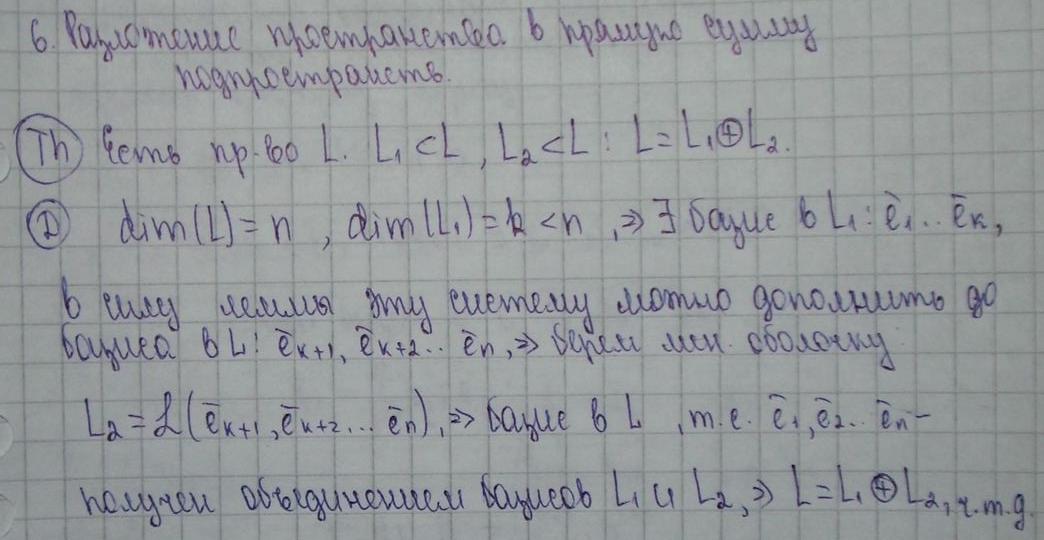 6. Разложение пространства в прямую сумму
подпространств.
Th Есть пр-во L. L₁ < L, L₂ < L : L = L₁ ⊕ L₂.
D dim(L) = n, dim(L₁) = k < n, ⇒ ∃ базис в L₁ : ē₁ .. ēₖ,
в силу леммы эту систему можно дополнить до
базиса в L: ēₖ₊₁, ēₖ₊₂ .. ēₙ, ⇒ берем лин. оболочку
L₂ = ℒ(ēₖ₊₁, ēₖ₊₂ ... ēₙ), ⇒ базис в L, т.е. ē₁, ē₂ .. ēₙ –
получен объединением базисов L₁ и L₂, ⇒ L = L₁ ⊕ L₂, ч.т.д.